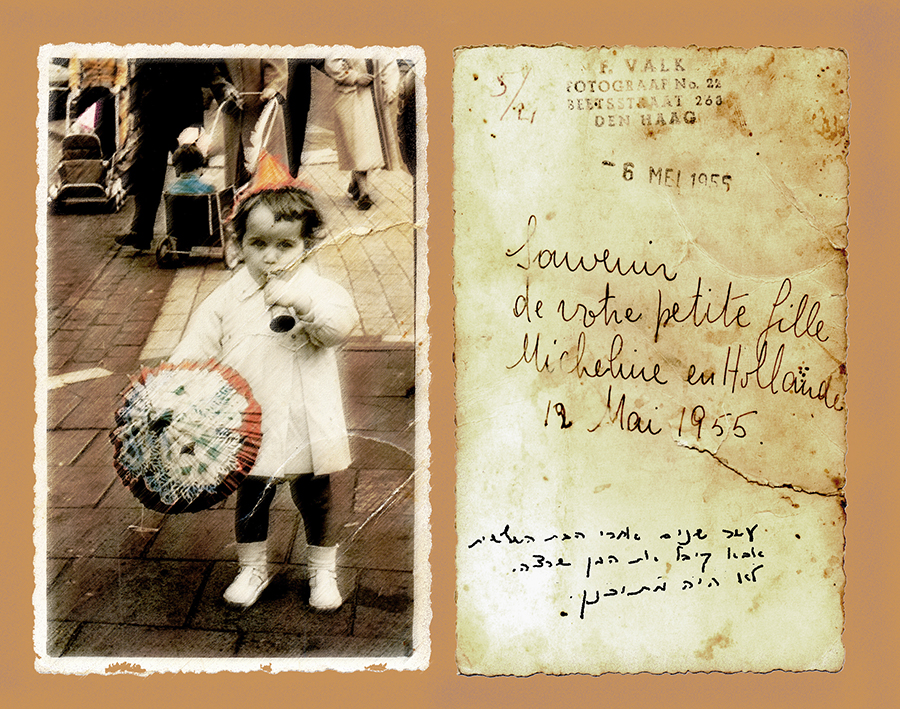 F. VALK
FOTOGRAAF No. 22
BEETSSTRAAT 263
DEN HAAG
5/21
- 6 MEI 1955
Souvenir
de votre petite fille
Micheline en Hollande
12 Mai 1955.
עשר שנים אחרי הבת השלישית
אבא קיבל את הבן שרצה.
לא היה מתוכנן.